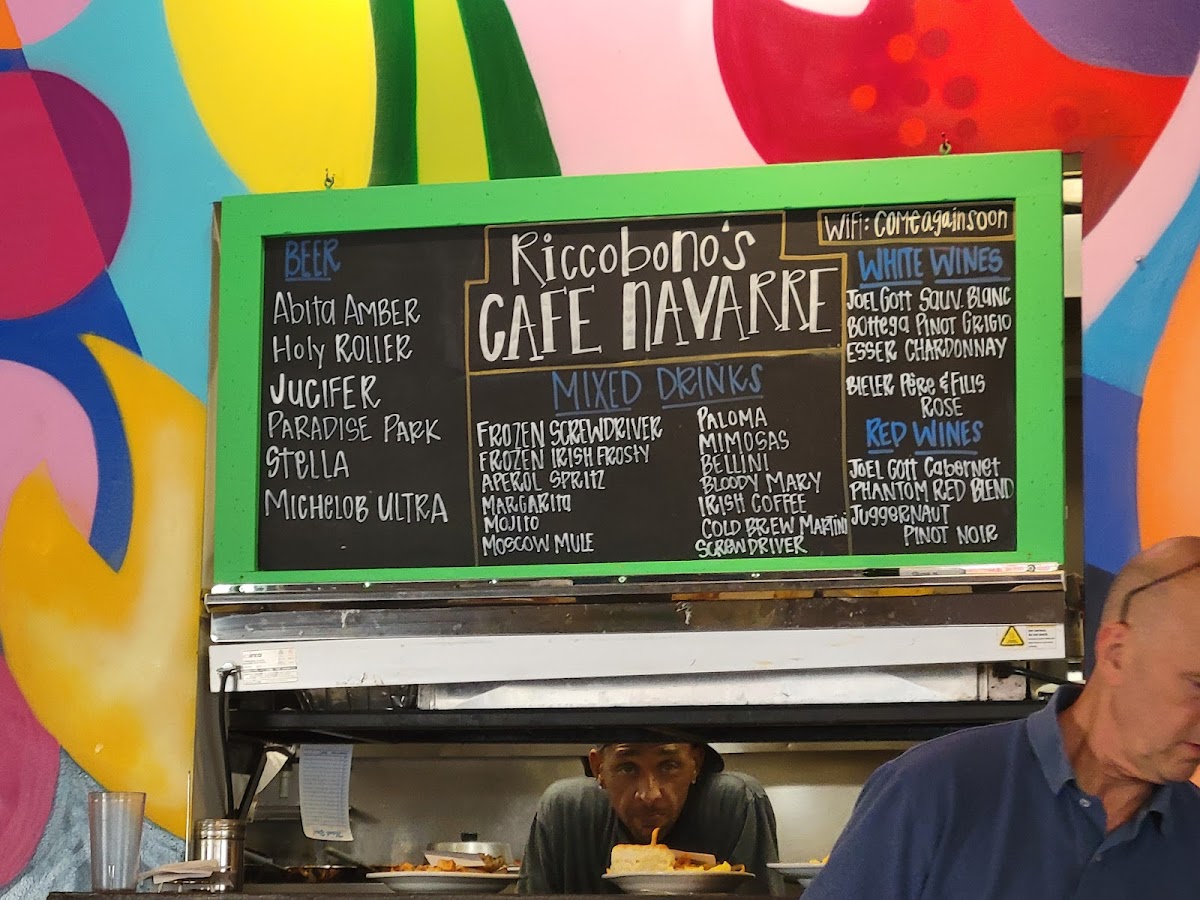 BEER
Abita AMBER
Holy ROLLER
JUCIFER
PARADISE PARK
Stella
MICHELOB ULTRA
Riccobono's
CAFE NAVARRE
MIXED DRINKS
FROZEN SCREWDRIVER
FROZEN IRISH FROSTY
APEROL SPRITZ
MARGARITA
MOJITO
MOSCOW MULE
PALOMA
MIMOSAS
BELLINI
BLOODY MARY
IRISH COFFEE
COLD BREW MARTINI
SCREWDRIVER
WiFi: comeagainsoon
WHITE WINES
JOEL GOTT SAUV. BLANC
BOTTEGA PINOT GRIGIO
ESSER CHARDONNAY
BIELER PÈRE & FILIS
ROSE
RED WINES
JOEL GOTT CABERNET
PHANTOM RED BLEND
JUGGERNAUT
PINOT NOIR